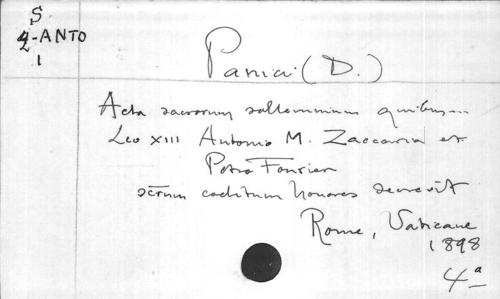 S
2-ANTO
1
Panici (D.)
Acta sacrorum sollemnium quibus
Leo XIII Antonio M. Zaccaria et
Petro Fourier
sctrum caelitum honores decrevit
Rome, Vaticane
1898
4a